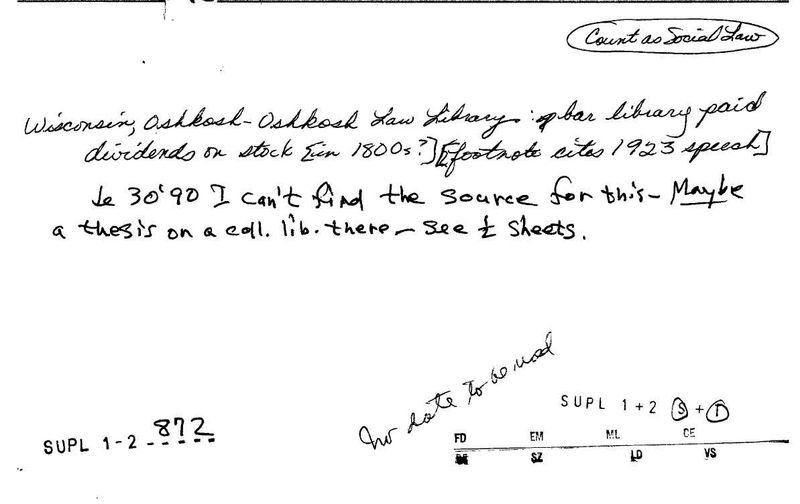 Count as Social Law
Wisconsin, Oshkosh - Oshkosh Law Library: bar library paid
dividends on stock [in 1800s?] [footnote cites 1923 speech]
30'90 I can't find the source for this - Maybe
a thesis on a coll. lib. there - See ½ Sheets.
no date to be used
SUPL 1+2 S + T
SUPL 1-2 872
FD EM ML CE
SZ LD VS